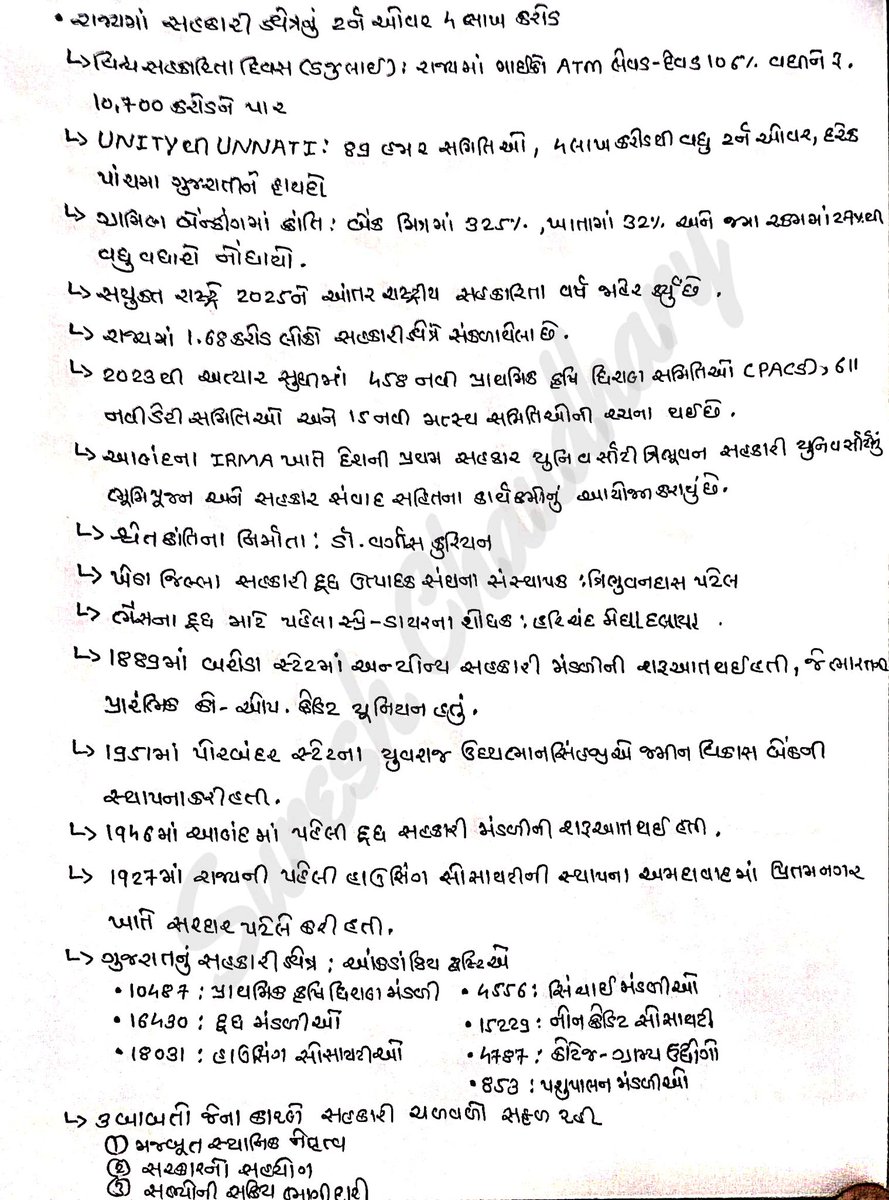 • રાજ્યમાં સહકારી ક્ષેત્રનું ટર્ન ઓવર ૪ લાખ કરોડ
↳ વિશ્વ સહકારિતા દિવસ (૬ જુલાઈ) : રાજ્યમાં માઈક્રો ATM લેવડ-દેવડ 106% વધીને રૂ.
10,700 કરોડને પાર
↳ UNITY થી UNNATI : 89 હજાર સમિતિઓ, ૪ લાખ કરોડથી વધુ ટર્ન ઓવર, દરેક
પાંચમા ગુજરાતીને ફાયદો
↳ ગ્રામિણ બેન્કીંગમાં ક્રાંતિ : બેંક મિત્રમાં 325%, ખાતામાં 32% અને જમા રકમમાં 24% થી
વધુ વધારો નોંધાયો.
↳ સયુક્ત રાષ્ટ્રે 2025ને આંતર રાષ્ટ્રીય સહકારિતા વર્ષ જાહેર કર્યું છે.
↳ રાજ્યમાં 1.68 કરોડ લોકો સહકારી ક્ષેત્રે સંકળાયેલા છે.
↳ 2023થી અત્યાર સુધીમાં 458 નવી પ્રાથમિક કૃષિ ધિરાણ સમિતિઓ (PACS), 611
નવી ડેરી સમિતિઓ અને 15 નવી મત્સ્ય સમિતિઓની રચના થઈ છે.
↳ આણંદના IRMA ખાતે દેશની પ્રથમ સહકાર યુનિવર્સીટી ત્રિભુવન સહકારી યુનિવર્સીટીનું
ભૂમિપૂજન અને સહકાર સંવાદ સહિતના કાર્યક્રમોનું આયોજન કરાયું છે.
↳ શ્વેત ક્રાંતિના નિર્માતા : ડૉ. વર્ગીસ કુરિયન
↳ ખેડા જિલ્લા સહકારી દૂધ ઉત્પાદક સંઘના સંસ્થાપક : ત્રિભુવનદાસ પટેલ
↳ ભેંસના દૂધ માટે પહેલા સ્પ્રે-ડ્રાયરના શોધક : હરિચંદ મેઘા દલાયા.
↳ 1889માં બરોડા સ્ટેટમાં અન્યોન્ય સહકારી મંડળીની શરૂઆત થઈ હતી, જે ભારતની
પ્રારંભિક કો-ઓપ. ક્રેડિટ યૂનિયન હતું.
↳ 1951માં પોરબંદર સ્ટેટના યુવરાજ ઉદયભાનસિંહજીએ જમીન વિકાસ બેંકની
સ્થાપના કરી હતી.
↳ 1946માં આણંદમાં પહેલી દૂધ સહકારી મંડળીની શરૂઆત થઈ હતી.
↳ 1927માં રાજ્યની પહેલી હાઉસિંગ સોસાયટીની સ્થાપના અમદાવાદમાં પ્રિતમનગર
ખાતે સરદાર પટેલે કરી હતી.
↳ ગુજરાતનું સહકારી ક્ષેત્ર : આંકડાકિય દ્રષ્ટિએ
• 10487 : પ્રાથમિક કૃષિ ધિરાણ મંડળી • 4556 : સિંચાઈ મંડળીઓ
• 16430 : દૂધ મંડળીઓ • 15229 : નોન ક્રેડિટ સોસાયટી
• 18031 : હાઉસિંગ સોસાયટીઓ • 4787 : કોટેજ-ગ્રામ્ય ઉદ્યોગો
• 853 : પશુપાલન મંડળીઓ
↳ ૩ બાબતો જેના કારણે સહકારી ચળવળો સફળ રહી
① મજબૂત સ્થાનિક નેતૃત્વ
② સરકારનો સહયોગ
③ સભ્યોની સક્રિય ભાગીદારી
Suresh Chaudhary